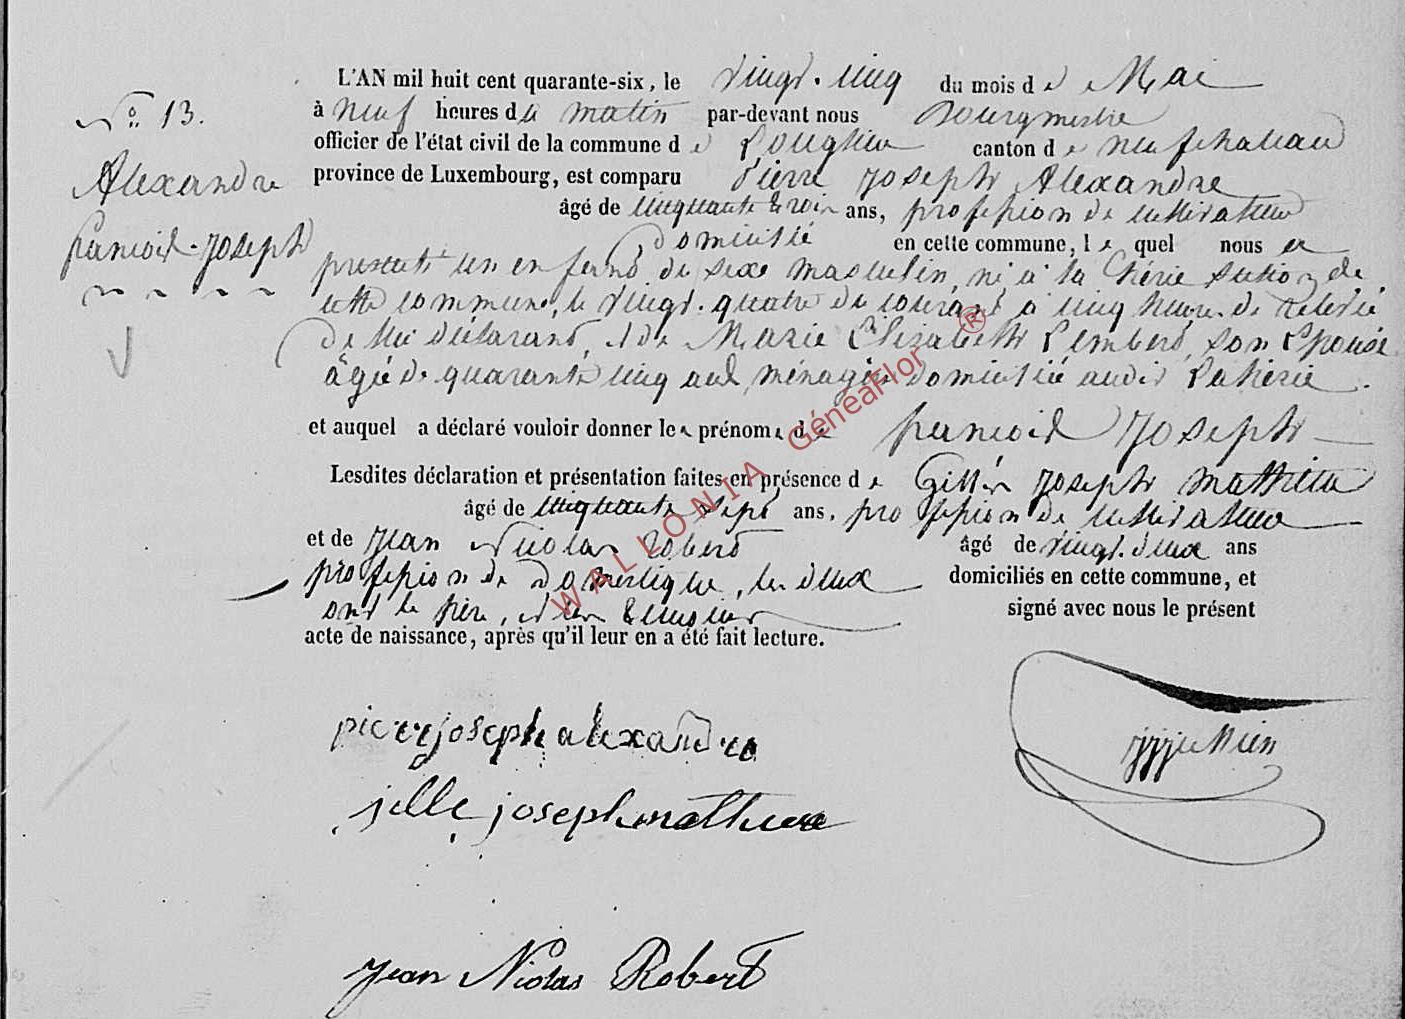 N° 13.
Alexandre
francois-Joseph
L'AN mil huit cent quarante-six, le vingt-cinq du mois de Mai
à neuf heures du matin par-devant nous Bourgmestre
officier de l'état civil de la commune de Longlier canton de neufchateau
province de Luxembourg, est comparu Pierre Joseph Alexandre
âgé de cinquante trois ans, profession de cultivateur
domicilié en cette commune, le quel nous a
presenté un enfant du sexe masculin, né à la Chérie section de
cette commune, le vingt-quatre du courant à cinq heures de relevée
de lui déclarant, et de Marie Elizabeth Lambert, son Epouse
âgée de quarante cinq ans, ménagère domiciliée audit Laherie.
et auquel a déclaré vouloir donner les prénoms de francois Joseph
Lesdites déclaration et présentation faites en présence de Gilles Joseph Mathieu
âgé de cinquante sept ans, profession de cultivateur
et de Jean Nicolas Robert âgé de vingt-deux ans
profession de Domestique, les deux domiciliés en cette commune, et
ont le père, et les temoins signé avec nous le présent
acte de naissance, après qu'il leur en a été fait lecture.
pierre joseph alexandre
jille joseph mathieu
Jean Nicolas Robert
WALLONIA GénéaFlor ®